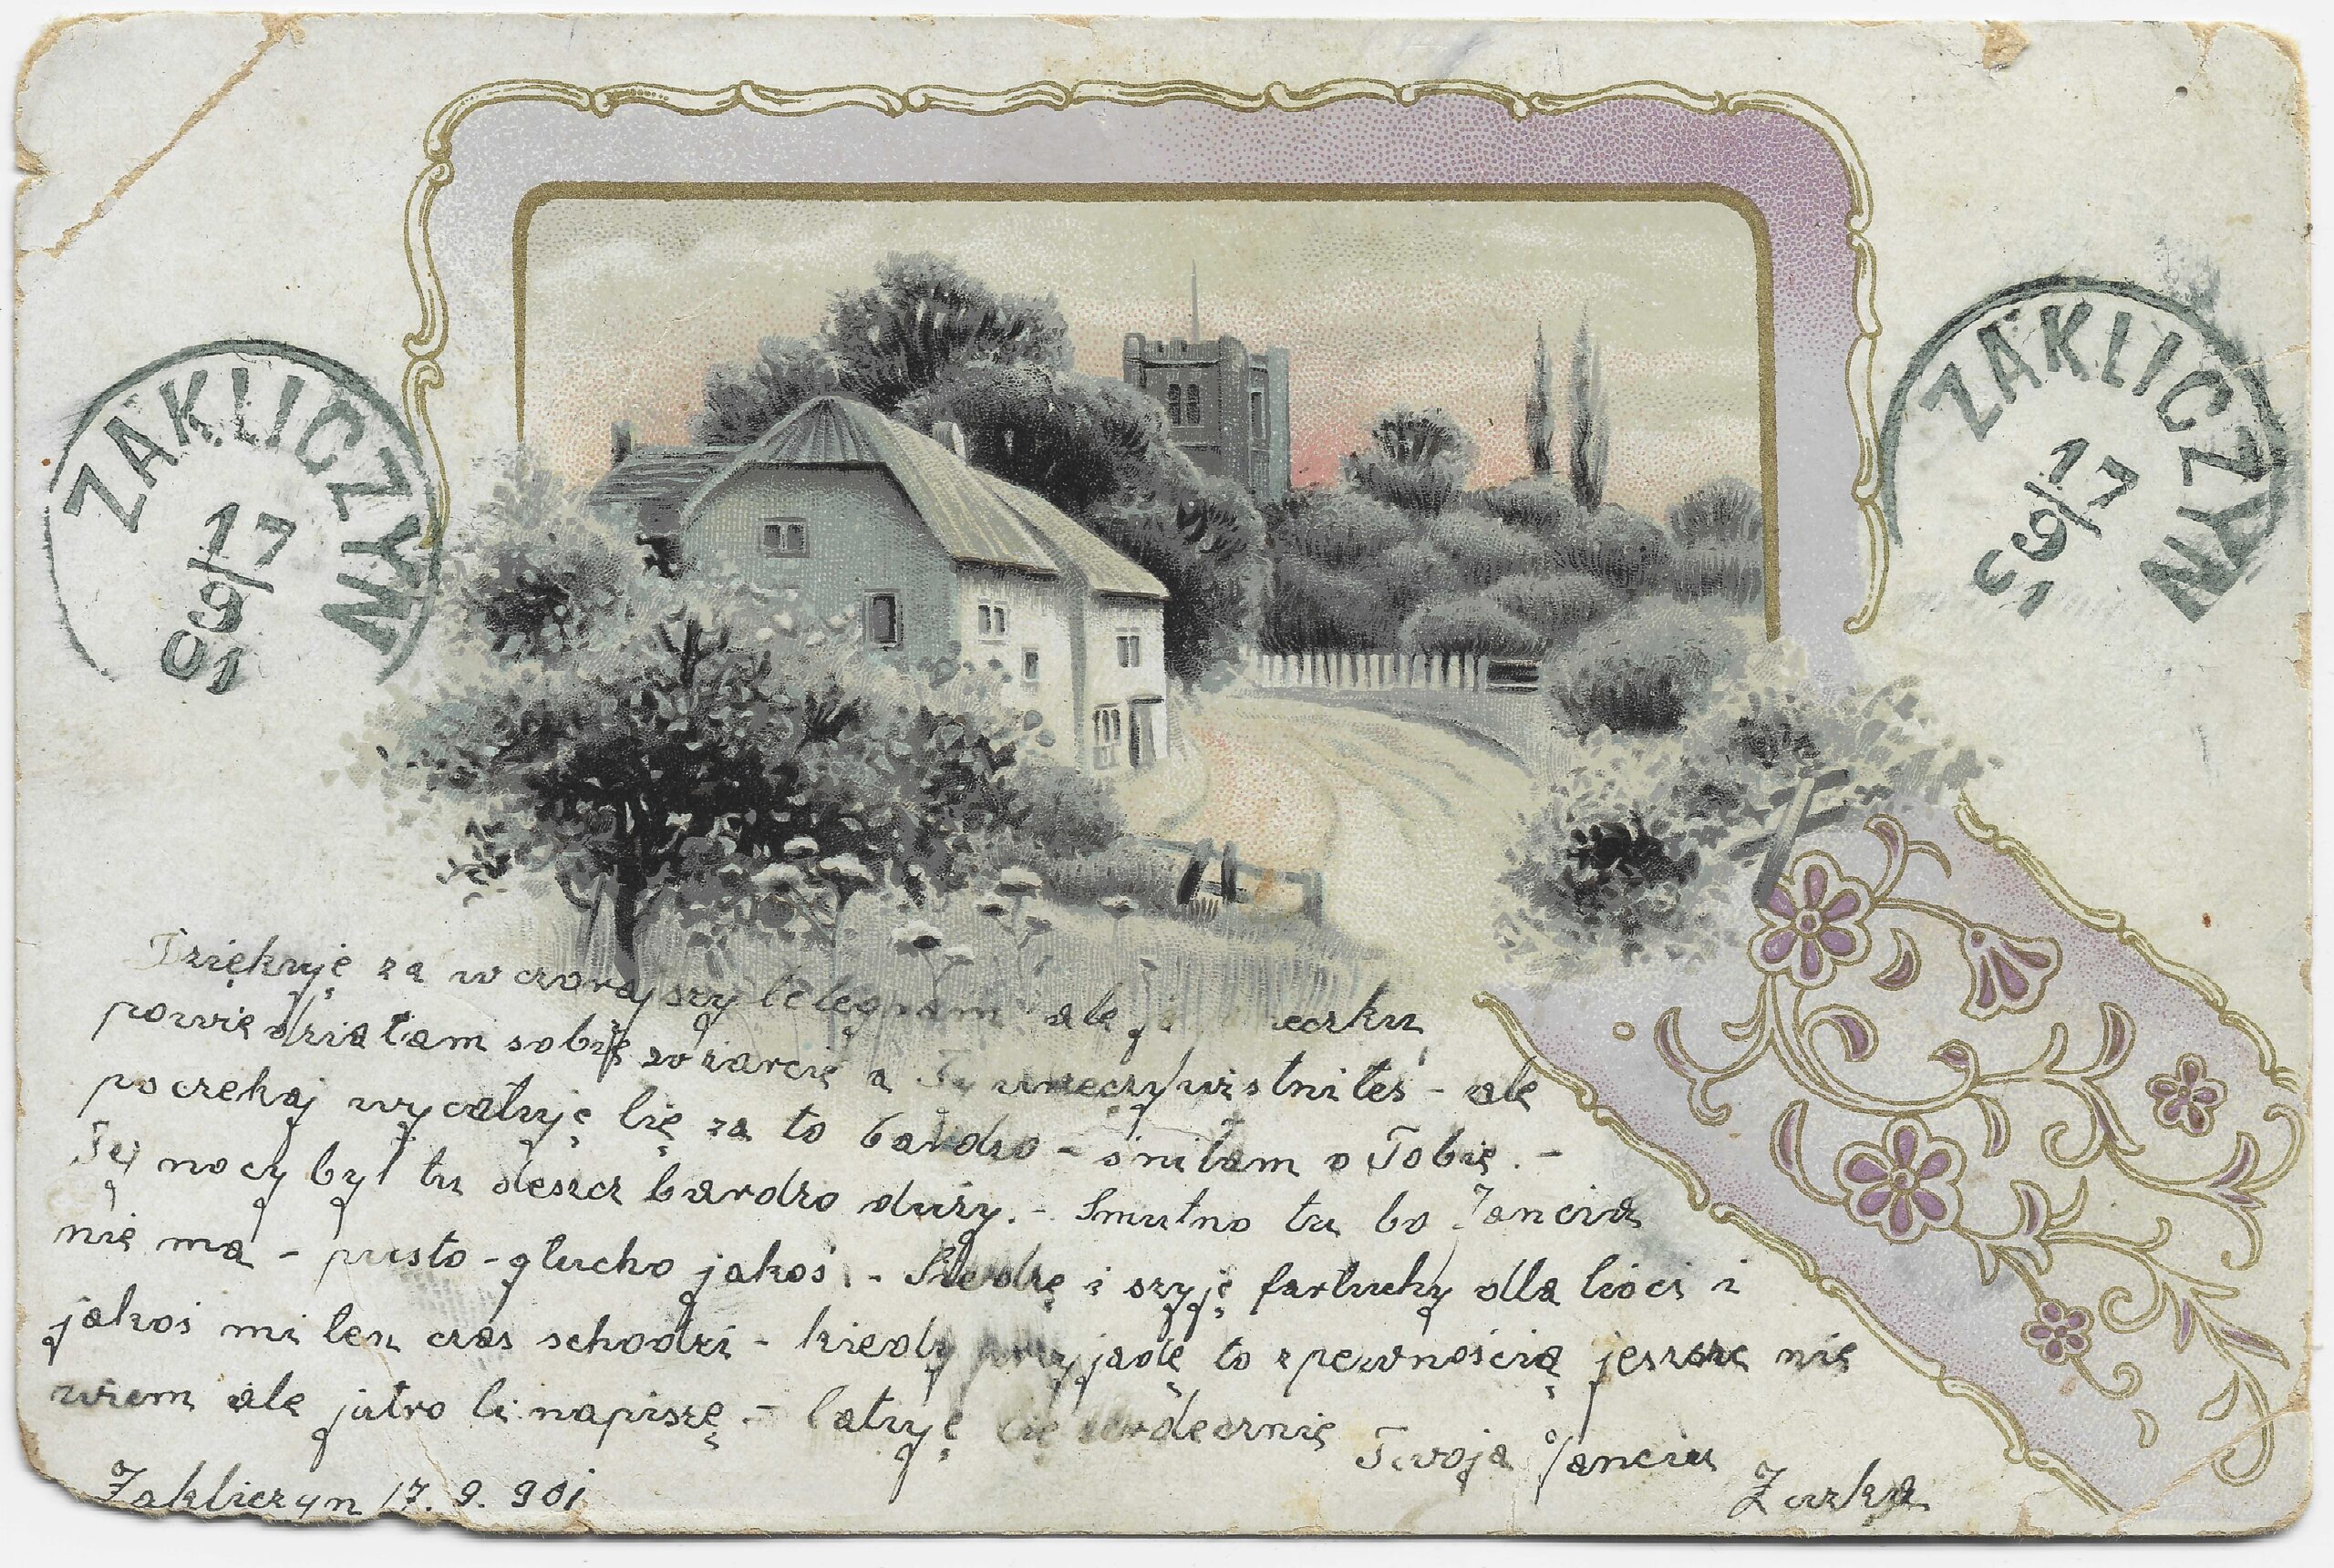 ZAKLICZYN
17/9
01
ZAKLICZYN
17/9
01
Dziękuję za wczorajszy telegram ale ja
powiedziałam sobie w żarcie a Ty urzeczywistniłeś - ale
poczekaj wycałuję Cię za to bardzo - śniłam o Tobie. -
Tej nocy był tu deszcz bardzo duży. - Smutno tu bo Jancia
nie ma - pusto - głucho jakoś. - Siedzę i szyję fartuchy dla cioci i
jakoś mi ten czas schodzi - kiedy przyjadę to z pewnością jeszcze nie
wiem ale jutro Ci napiszę. - Całuję Cię serdecznie
Twoja Janciu
Zuzka
Zakliczyn 17. 9. 901